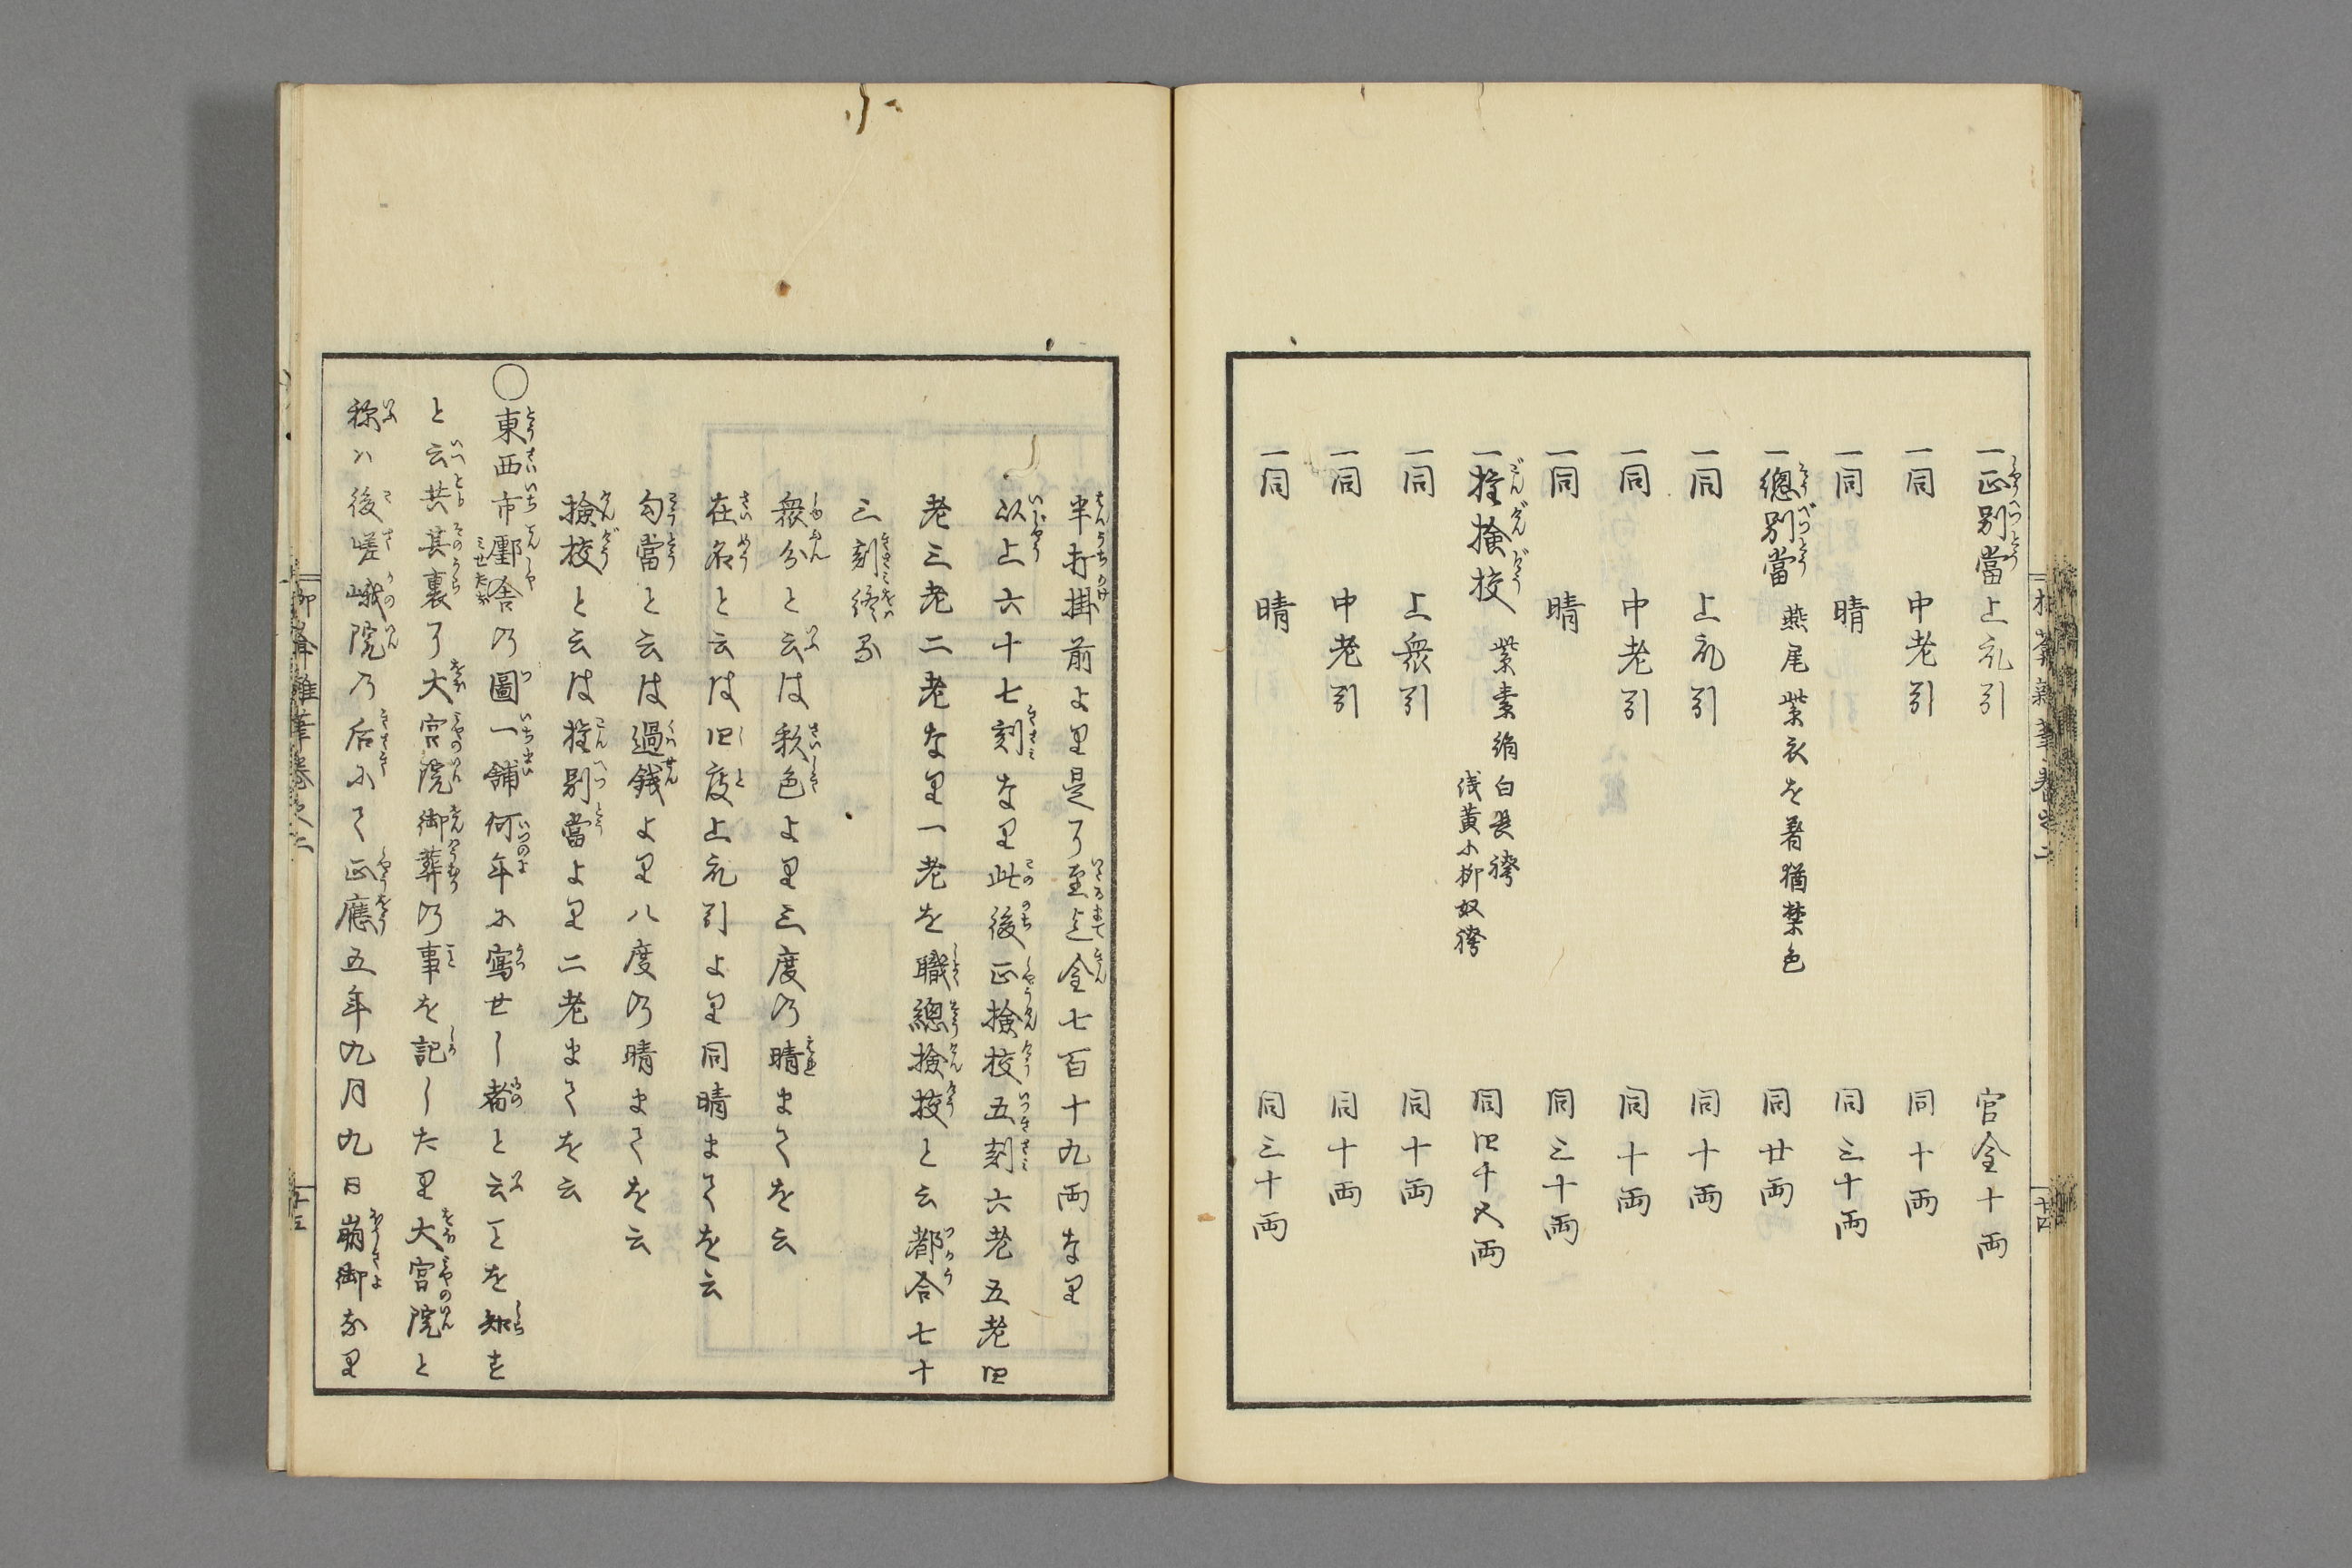 一正別當上衆引 官金十両
一同 中老引 同十両
一同 晴 同三十両
一總別當 燕尾紫衣を着猶禁色 同廿両
一同 上衆引 同十両
一同 中老引 同十両
一同 晴 同三十両
一權撿挍 紫素絹白長袴 浅黄小柳奴袴 同四十五両
一同 上衆引 同十両
一同 中老引 同十両
一同 晴 同三十両
半打掛前より是了至迄金七百十九両なり
以上六十七刻なり此後正撿挍五刻六老五老四
老三老二老なり一老を職總撿挍と云都合七十
三刻終る
衆分と云は秡色より三度乃晴まてを云
在名と云は四度上衆引より同晴まてを云
勾當と云は過銭より八度乃晴まてを云
撿挍と云は權別當より二老まてを云
○東西市鄽舎乃圖一舗何年に寫せし者と云ことを知す
と云共其裏了大宮院御葬乃事を記したり大宮院と
称ハ後嵯峨院乃后にて正應五年九月九日崩御なり